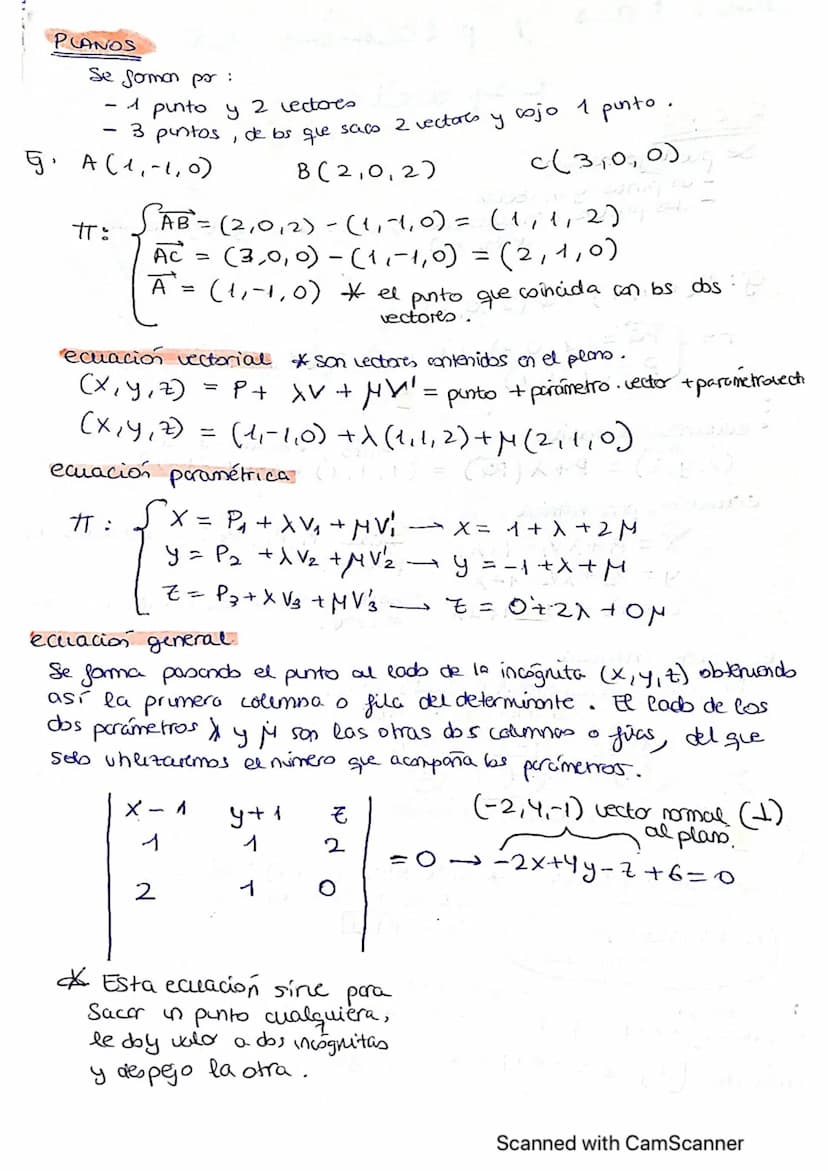 PLANOS
Se forman por :
- 1 punto y 2 vectores
- 3 puntos, de los que saco 2 vectores y cojo 1 punto.
Ej. A(1,-1,0) B(2,0,2) C(3,0,0)
π: { AB = (2,0,2) - (1,-1,0) = (1,1,2)
AC = (3,0,0) - (1,-1,0) = (2,1,0)
A = (1,-1,0) * el punto que coincida con los dos
vectores.
ecuación vectorial * son vectores contenidos en el plano.
(x,y,z) = P + λV + μV' = punto + parámetro · vector + parámetro·vect
(x,y,z) = (1,-1,0) + λ(1,1,2) + μ(2,1,0)
ecuación paramétrica
π : { x = P₁ + λV₁ + μV₁' → x = 1 + λ + 2μ
y = P₂ + λV₂ + μV₂' → y = -1 + λ + μ
z = P₃ + λV₃ + μV₃' → z = 0 + 2λ + 0μ
ecuación general
Se forma pasando el punto al lado de la incógnita (x,y,z) obteniendo
así la primera columna o fila del determinante. El lado de los
dos parámetros λ y μ son las otras dos columnas o filas, del que
solo utilizaremos el número que acompaña los parámetros.
(-2,4,-1) vector normal (⊥)
al plano.
| x-1 y+1 z |
| 1 1 2 | = 0 → -2x+4y-z+6=0
| 2 1 0 |
* Esta ecuación sirve para
sacar un punto cualquiera,
le doy valor a dos incógnitas
y despejo la otra.
Scanned with CamScanner